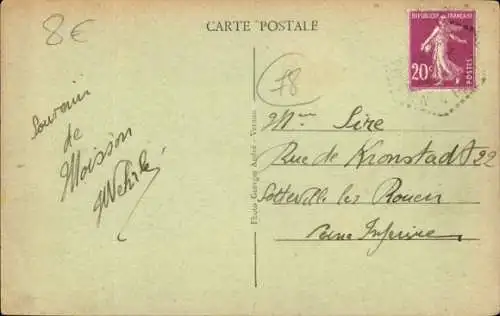 8€
CARTE POSTALE
REPUBLIQUE FRANÇAISE
20c
POSTES
78
Souvenir
de
Moisson
Mme Sire
Rue de Kronstadt 22
Sotteville les Rouen
Seine Inferieure
Photo Georges André - Vernon